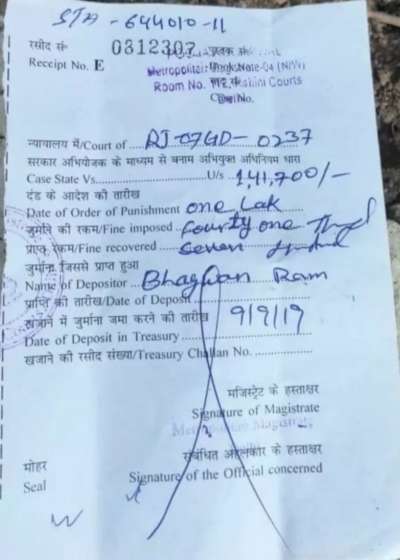 STA - 644010-11
रसीद सं 0312307 पुस्तक सं
Receipt No. E
Metropolitan Magistrate-04 (N/W)
Room No. 112, Rohini Courts
Delhi
न्यायालय में/Court of .... RJ-07GD-0237
सरकार अभियोजक के माध्यम से बनाम अभियुक्त अधिनियम धारा
Case State Vs.................... U/s 1,41,700/-
दंड के आदेश की तारीख
Date of Order of Punishment one Lak
जुर्माने की रकम/Fine imposed fourty one
प्राप्त रकम/Fine recovered Seven
जुर्माना जिससे प्राप्त हुआ
Name of Depositor Bhagwan Ram
प्राप्ति की तारीख/Date of Deposit
खजाने में जुर्माना जमा करने की तारीख 9/9/19
Date of Deposit in Treasury
खजाने की रसीद संख्या/Treasury Challan No.
मजिस्ट्रेट के हस्ताक्षर
Signature of Magistrate
Metropolitan Magistrate
संबंधित अहलकार के हस्ताक्षर
मोहर
Signature of the Official concerned
Seal